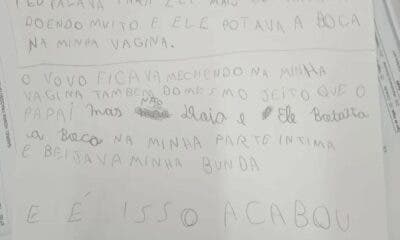 DOENDO MUITO E ELE POTAVA A BOCA
NA MINHA VAGINA.
O VOVO FICAVA MECHENDO NA MINHA
VAGINA TAMBEM DO MESMO JEITO QUE O
PAPAI mas NÃO e Ele Botava
a Boca NA MINHA PARTE INTIMA
E BEIJAVA MINHA BUNDA
E É ISSO ACABOU